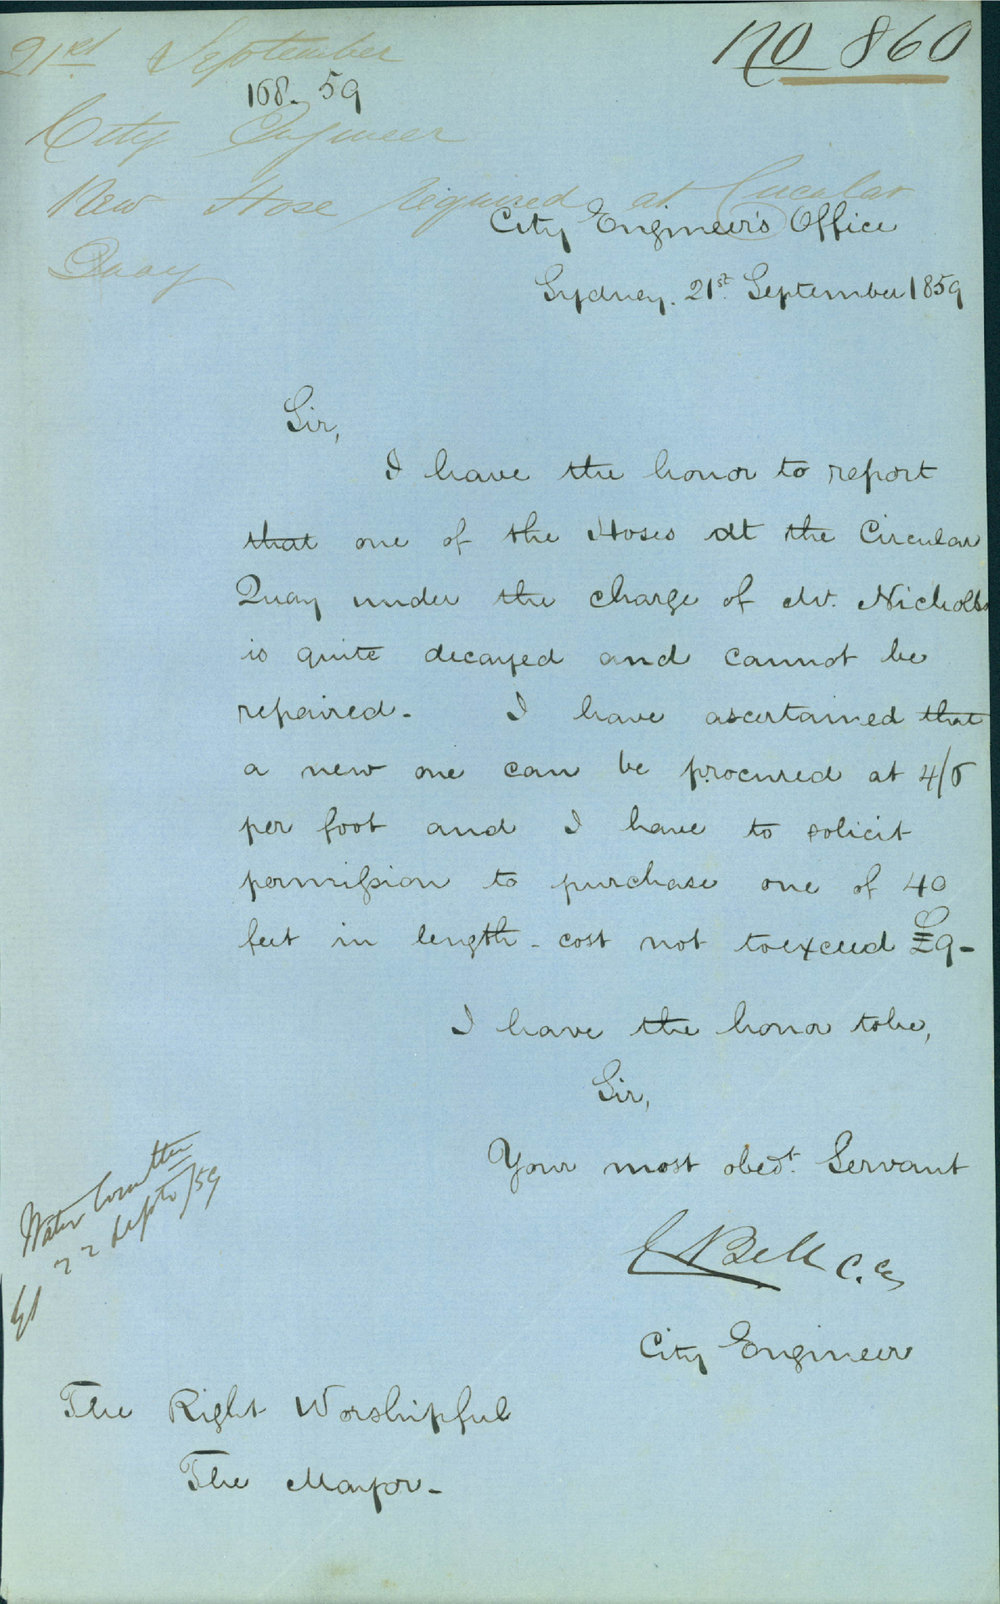 21st September
No 860
168-59
City Engineer
New Hose required at Circular
Quay
City Engineer's Office
Sydney. 21st September 1859
Sir,
I have the honor to report
that one of the Hoses at the Circular
Quay under the charge of Mr. Nicholls
is quite decayed and cannot be
repaired- I have ascertained that
a new one can be procured at 4/6
per foot and I have to solicit
permission to purchase one of 40
feet in length - cost not to exceed £9-
I have the honor to be,
Sir,
Your most obedt. Servant
E Bell C.E.
City Engineer
Water Committee
22 Septr/59
The Right Worshipful
The Mayor-